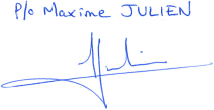 P/o Maxime JULIEN